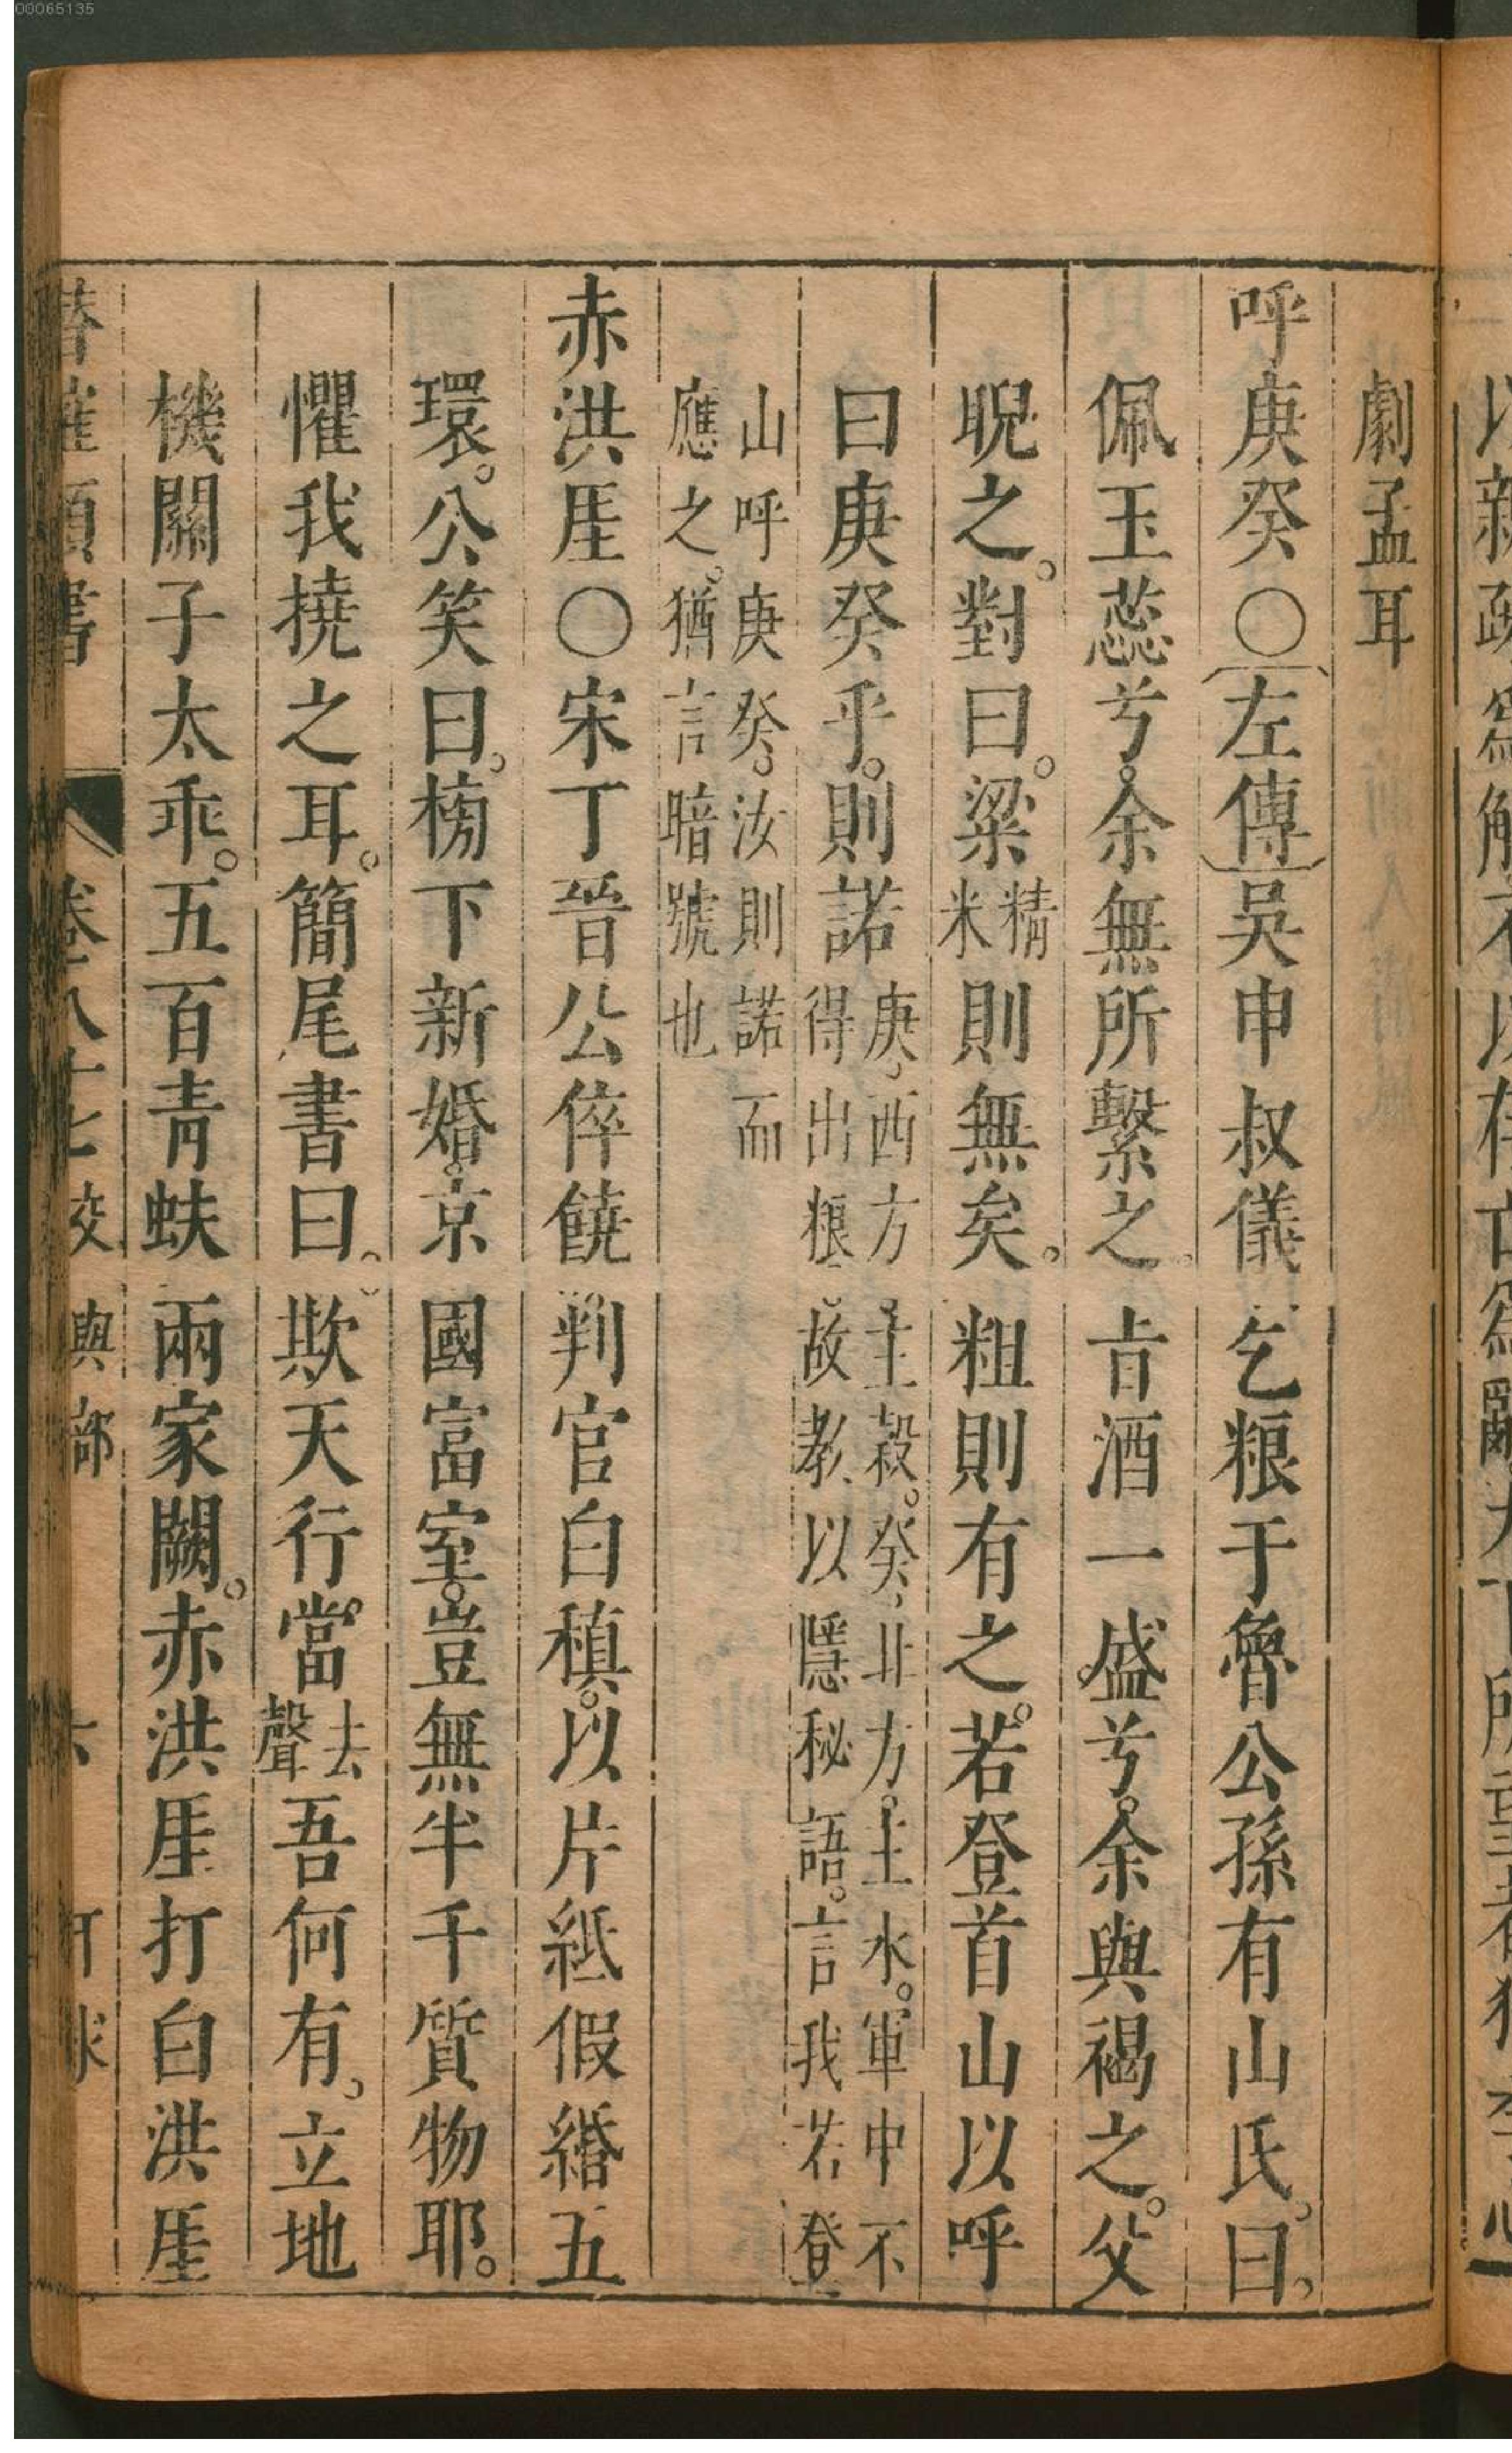 00065135
劇孟耳
呼庚癸○左傳吳申叔儀乞粮于魯公孫有山氏。曰。
佩玉蕊兮。余無所繫之。旨酒一盛兮。余與褐之。父
睨之。對曰。粱精米則無矣。粗則有之。若登首山以呼
曰庚癸乎。則諾庚、西方。主穀。癸、北方。主水。軍中不
得出粮。故教以隱秘語。言我若登
山呼庚癸。汝則諾而
應之。猶言暗號也
赤洪厓○宋丁晉公倅饒。判官白稹。以片紙假緡五
環。公笑曰。榜下新婚。京國富室。豈無半千質物耶。
懼我撓之耳。簡尾書曰。欺天行。當去聲吾何有。立地
機關子太乖。五百青蚨兩家闕。赤洪厓打白洪厓
卷八十七 校 輿部 六